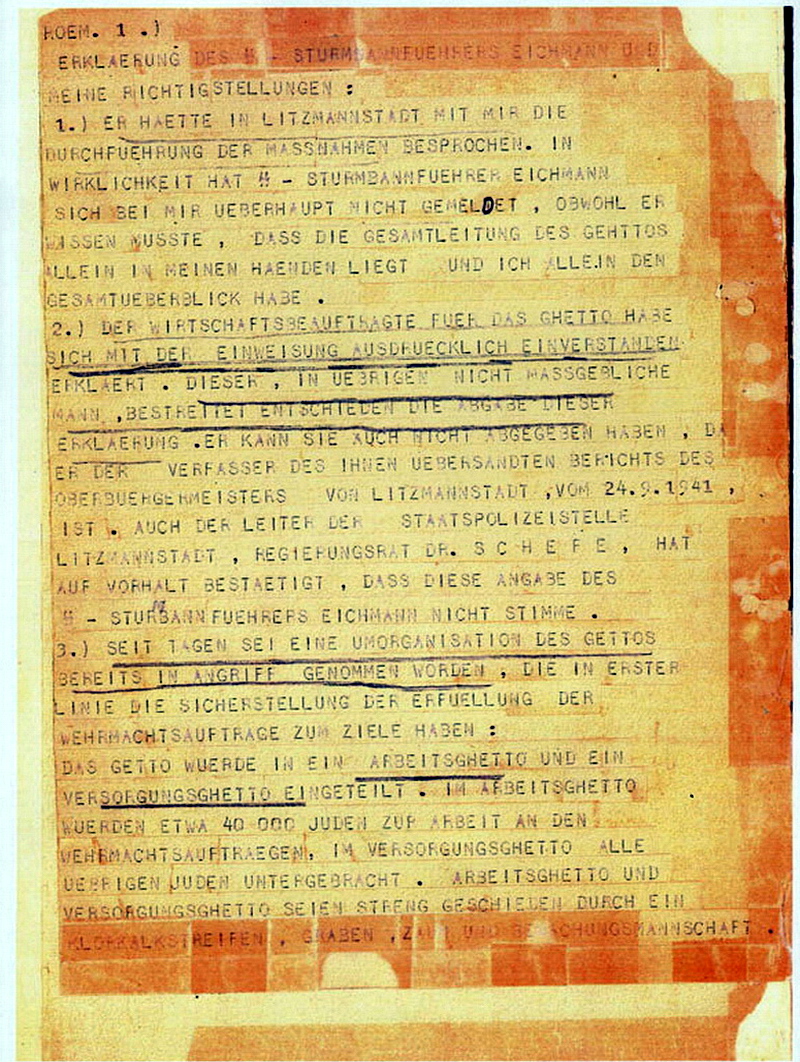 ROEM. 1 .)
ERKLAERUNG DES SS - STURMBANNFUEHRERS EICHMANN UND
MEINE RICHTIGSTELLUNGEN :
1.) ER HAETTE IN LITZMANNSTADT MIT MIR DIE
DURCHFUEHRUNG DER MASSNAHMEN BESPROCHEN. IN
WIRKLICHKEIT HAT SS - STURMBANNFUEHRER EICHMANN
SICH BEI MIR UEBERHAUPT NICHT GEMELDET , OBWOHL ER
WISSEN MUSSTE , DASS DIE GESAMTLEITUNG DES GEHTTOS
ALLEIN IN MEINEN HAENDEN LIEGT UND ICH ALLEIN DEN
GESAMTUEBERBLICK HABE .
2.) DER WIRTSCHAFTSBEAUFTRAGTE FUER DAS GHETTO HABE
SICH MIT DER EINWEISUNG AUSDRUECKLICH EINVERSTANDEN
ERKLAERT . DIESER , IN UEBRIGEN NICHT MASSGEBLICHE
MANN ,BESTREITET ENTSCHIEDEN DIE ABGABE DIESER
ERKLAERUNG .ER KANN SIE AUCH NICHT ABGEGEBEN HABEN , DA
ER DER VERFASSER DES IHNEN UEBERSANDTEN BERICHTS DES
OBERBUERGERMEISTERS VON LITZMANNSTADT ,VOM 24.9.1941 ,
IST . AUCH DER LEITER DER STAATSPOLIZEISTELLE
LITZMANNSTADT , REGIERUNGSRAT DR. S C H E F E , HAT
AUF VORHALT BESTAETIGT , DASS DIESE ANGABE DES
SS - STURMBANNFUEHRERS EICHMANN NICHT STIMME .
3.) SEIT TAGEN SEI EINE UMORGANISATION DES GETTOS
BEREITS IN ANGRIFF GENOMMEN WORDEN , DIE IN ERSTER
LINIE DIE SICHERSTELLUNG DER ERFUELLUNG DER
WEHRMACHTSAUFTRAGE ZUM ZIELE HABEN :
DAS GETTO WUERDE IN EIN ARBEITSGHETTO UND EIN
VERSORGUNGSGHETTO EINGETEILT . IM ARBEITSGHETTO
WUERDEN ETWA 40 000 JUDEN ZUR ARBEIT AN DEN
WEHRMACHTSAUFTRAEGEN, IM VERSORGUNGSGHETTO ALLE
UEBRIGEN JUDEN UNTERGEBRACHT . ARBEITSGHETTO UND
VERSORGUNGSGHETTO SEIEN STRENG GESCHIEDEN DURCH EIN
KLORKALKSTREIFEN , GRABEN ,ZAUN UND BEWACHUNGSMANNSCHAFT .